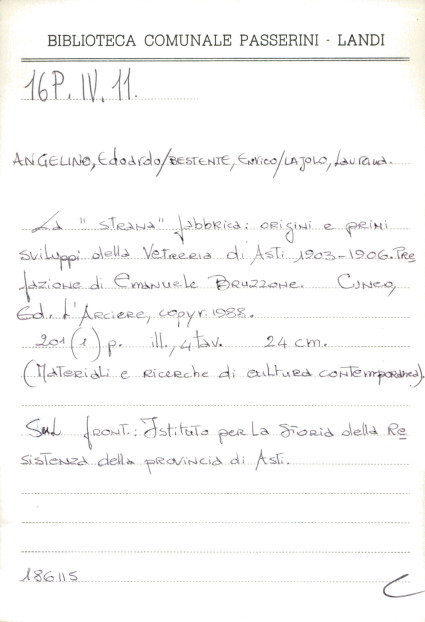 BIBLIOTECA COMUNALE PASSERINI - LANDI
16P. IV. 11.
ANGELINO, Edoardo/BESTENTE, Enrico/LAJOLO, Laurana.
La "strana" fabbrica: origini e primi
sviluppi della Vetreria di Asti 1903-1906. Pre
fazione di Emanuele Bruzzone. Cuneo,
Ed. L'Arciere, copyr. 1988.
201(1) p. ill., 4 tav. 24 cm.
(Materiali e ricerche di cultura contemporanea).
Sul front.: Istituto per la storia della Re
sistenza della provincia di Asti.
186115